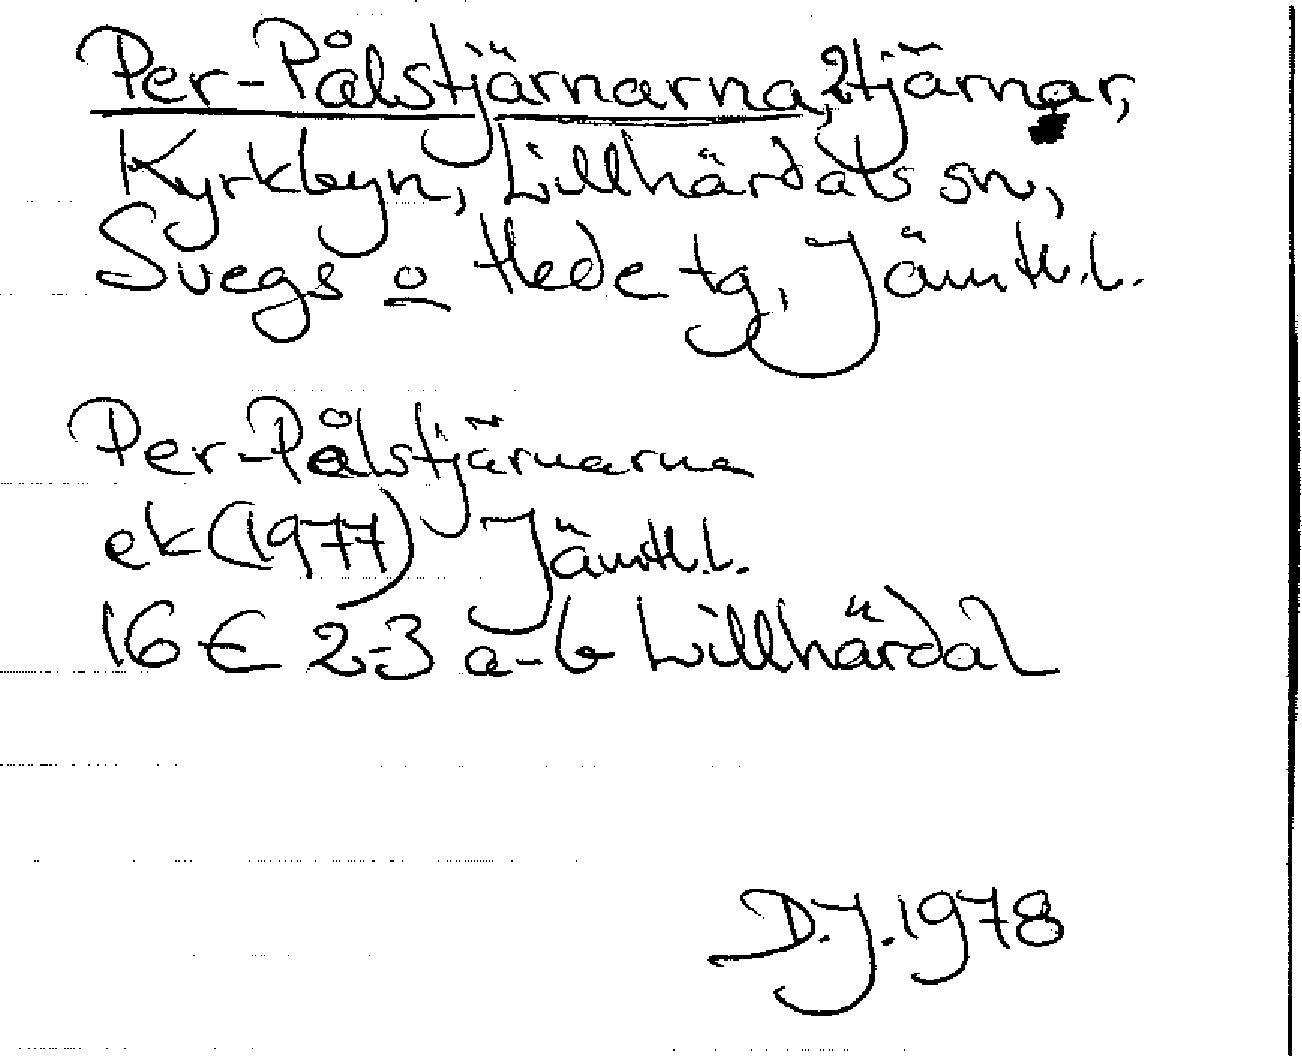 Per-Pålstjärnarna, 2 tjärnar,
Kyrkbyn, Lillhärdals sn,
Svegs o Hede tg, Jämtl.l.
Per-Pålstjärnarna
ek (1977) Jämtl.l.
16 E 2-3 a-b Lillhärdal
D.J. 1978